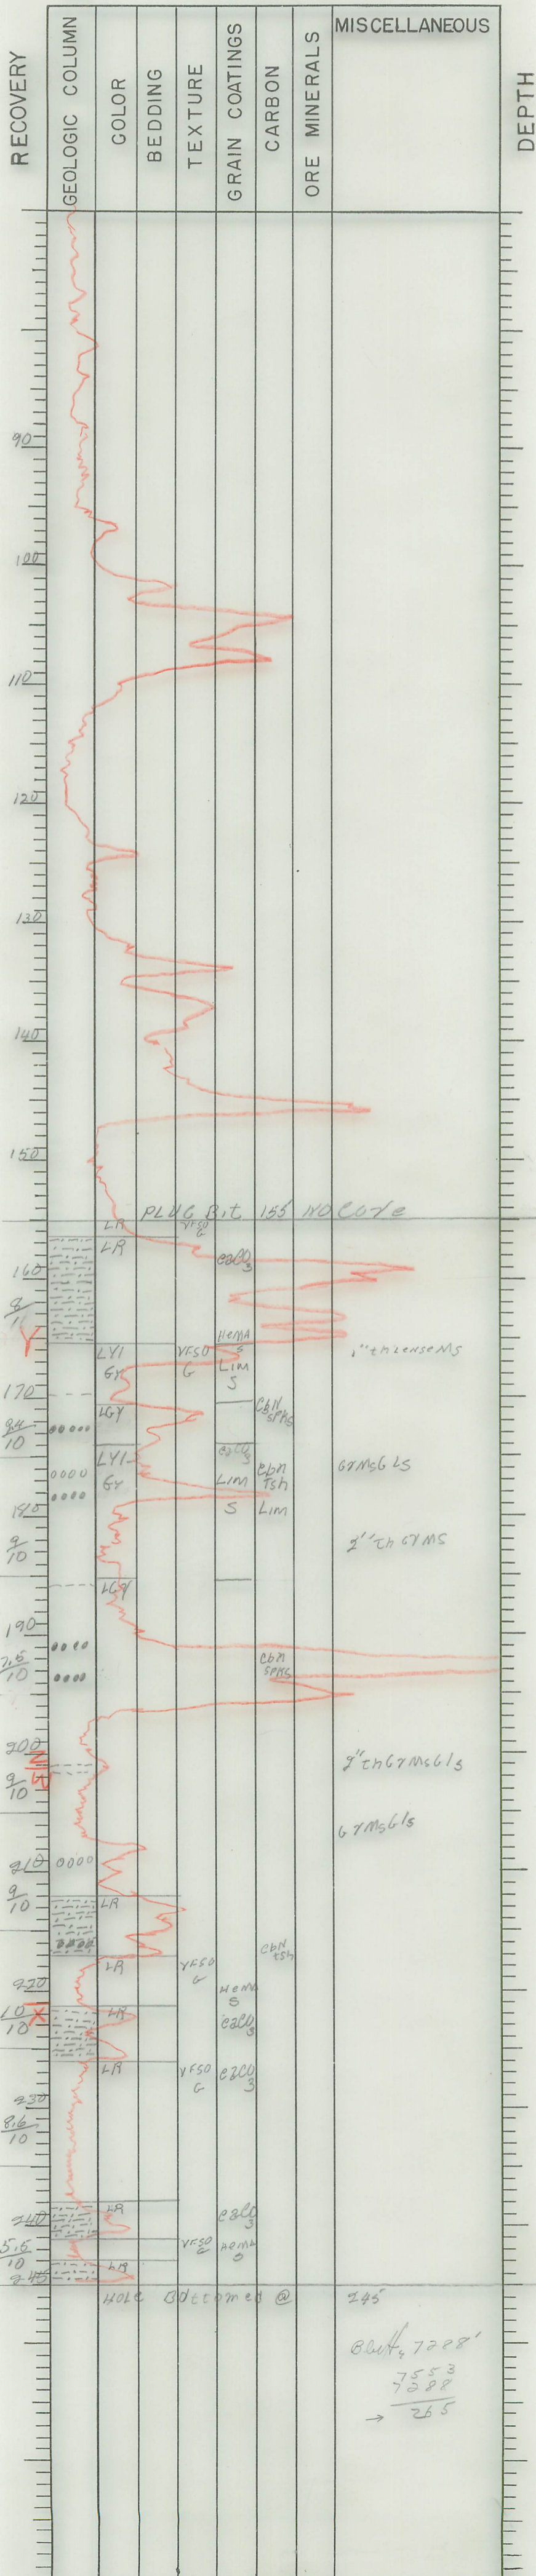 RECOVERY
GEOLOGIC COLUMN
COLOR
BEDDING
TEXTURE
GRAIN COATINGS
CARBON
ORE MINERALS
MISCELLANEOUS
DEPTH
90
100
110
120
130
140
150
PLUG Bit 155 NO Core
LR VFSO G
LR CaCO3
160
8
HEMA S
Y
LYI GY VFSO G LIM S
1" th lense Ms
170
LGY CbN SPKS
9.4/10
CaCO3
LYI GY LIM S Cbn Tsh LIM
GYMsGLS
180
9/10
2" Th GYMS
LGY
190
7.5/10
Cbn SPKS
200
2" th GYMsGls
9/10
GYMsGls
210
9/10
LR
CbN tsh
LR VFSO G
220
HEMA S
10/10
X
LR CaCO3
LR VFSO G CaCO3
230
8.6/10
240
LR CaCO3
5.5/10
VFSO G HEMA S
LR
245
HOLE Bottomed @ 245'
7288'
7553
7288
→ 265